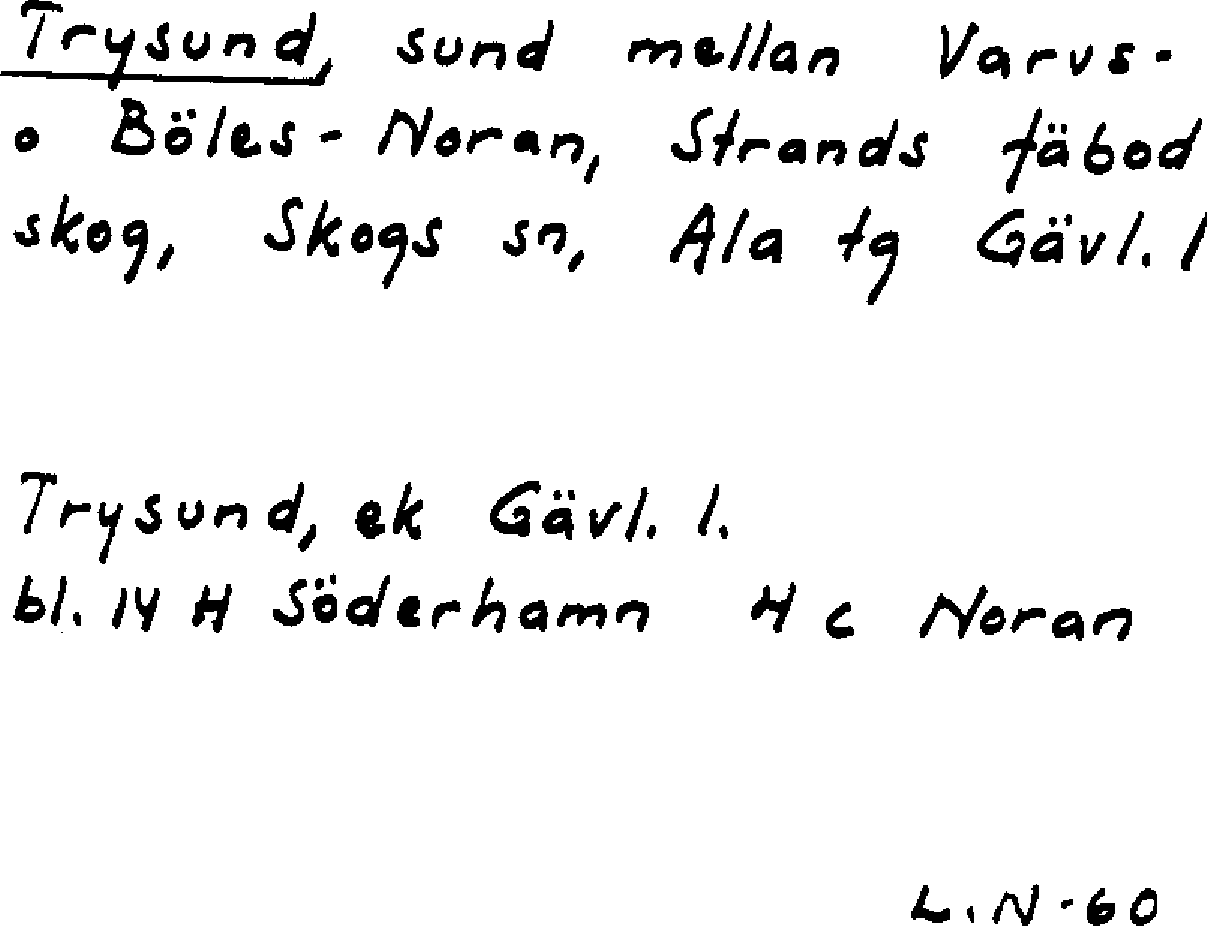 Trysund, sund mellan Varvs-
o Böles-Noran, Strands fäbod
skog, Skogs sn, Ala tg Gävl. l
Trysund, ek Gävl. l.
bl. 14 H Söderhamn 4 c Noran
L.N-60